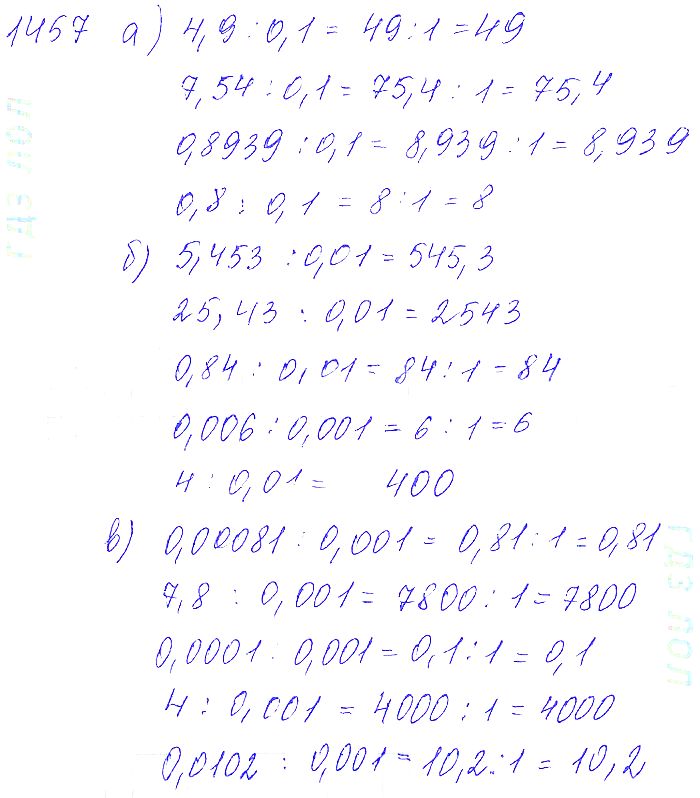 1457 а) 4,9 : 0,1 = 49 : 1 = 49
7,54 : 0,1 = 75,4 : 1 = 75,4
0,8939 : 0,1 = 8,939 : 1 = 8,939
0,8 : 0,1 = 8 : 1 = 8
б) 5,453 : 0,01 = 545,3
25,43 : 0,01 = 2543
0,84 : 0,01 = 84 : 1 = 84
0,006 : 0,001 = 6 : 1 = 6
4 : 0,01 = 400
в) 0,00081 : 0,001 = 0,81 : 1 = 0,81
7,8 : 0,001 = 7800 : 1 = 7800
0,0001 : 0,001 = 0,1 : 1 = 0,1
4 : 0,001 = 4000 : 1 = 4000
0,0102 : 0,001 = 10,2 : 1 = 10,2
гдз пол